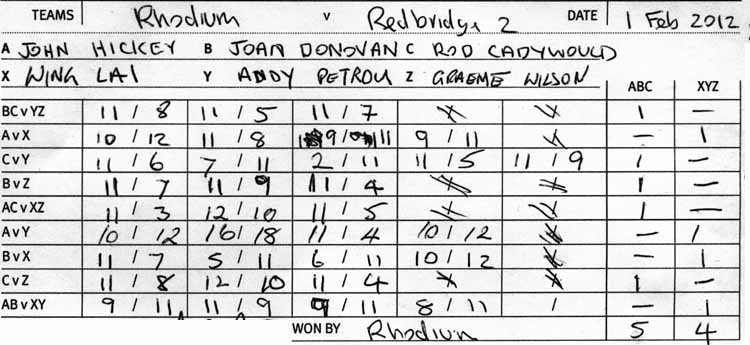 TEAMS Rhodium v Redbridge 2 DATE 1 Feb 2012
A JOHN HICKEY B JOAN DONOVAN C ROD CADYWOULD
X WING LAI Y ANDY PETROU Z GRAEME WILSON ABC XYZ
BC v YZ 11 / 8 11 / 5 11 / 7 1 –
A v X 10 / 12 11 / 8 9 / 11 9 / 11 – 1
C v Y 11 / 6 7 / 11 2 / 11 11 / 5 11 / 9 1 –
B v Z 11 / 7 11 / 9 11 / 4 1 –
AC v XZ 11 / 3 12 / 10 11 / 5 1 –
A v Y 10 / 12 16 / 18 11 / 4 10 / 12 – 1
B v X 11 / 7 5 / 11 6 / 11 10 / 12 – 1
C v Z 11 / 8 12 / 10 11 / 4 1 –
AB v XY 9 / 11 11 / 9 9 / 11 8 / 11 / – 1
WON BY Rhodium 5 4